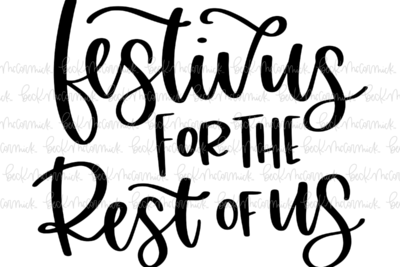 Festivus
FOR THE
Rest OF US